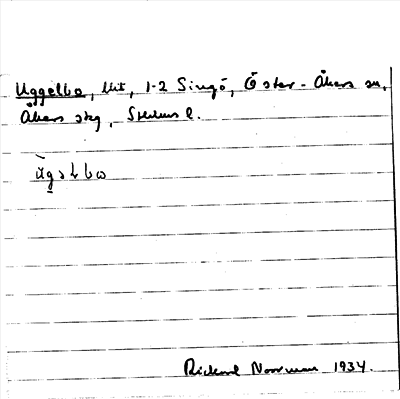 Uggelbo, lht, 1-2 Singö, Öster-Åkers sn,
Åkers skg, Sthlms l.
Rickard Noorman 1934.